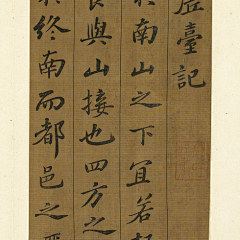 臺記
南山之下宜若
與山接也四方之
終南而都邑之